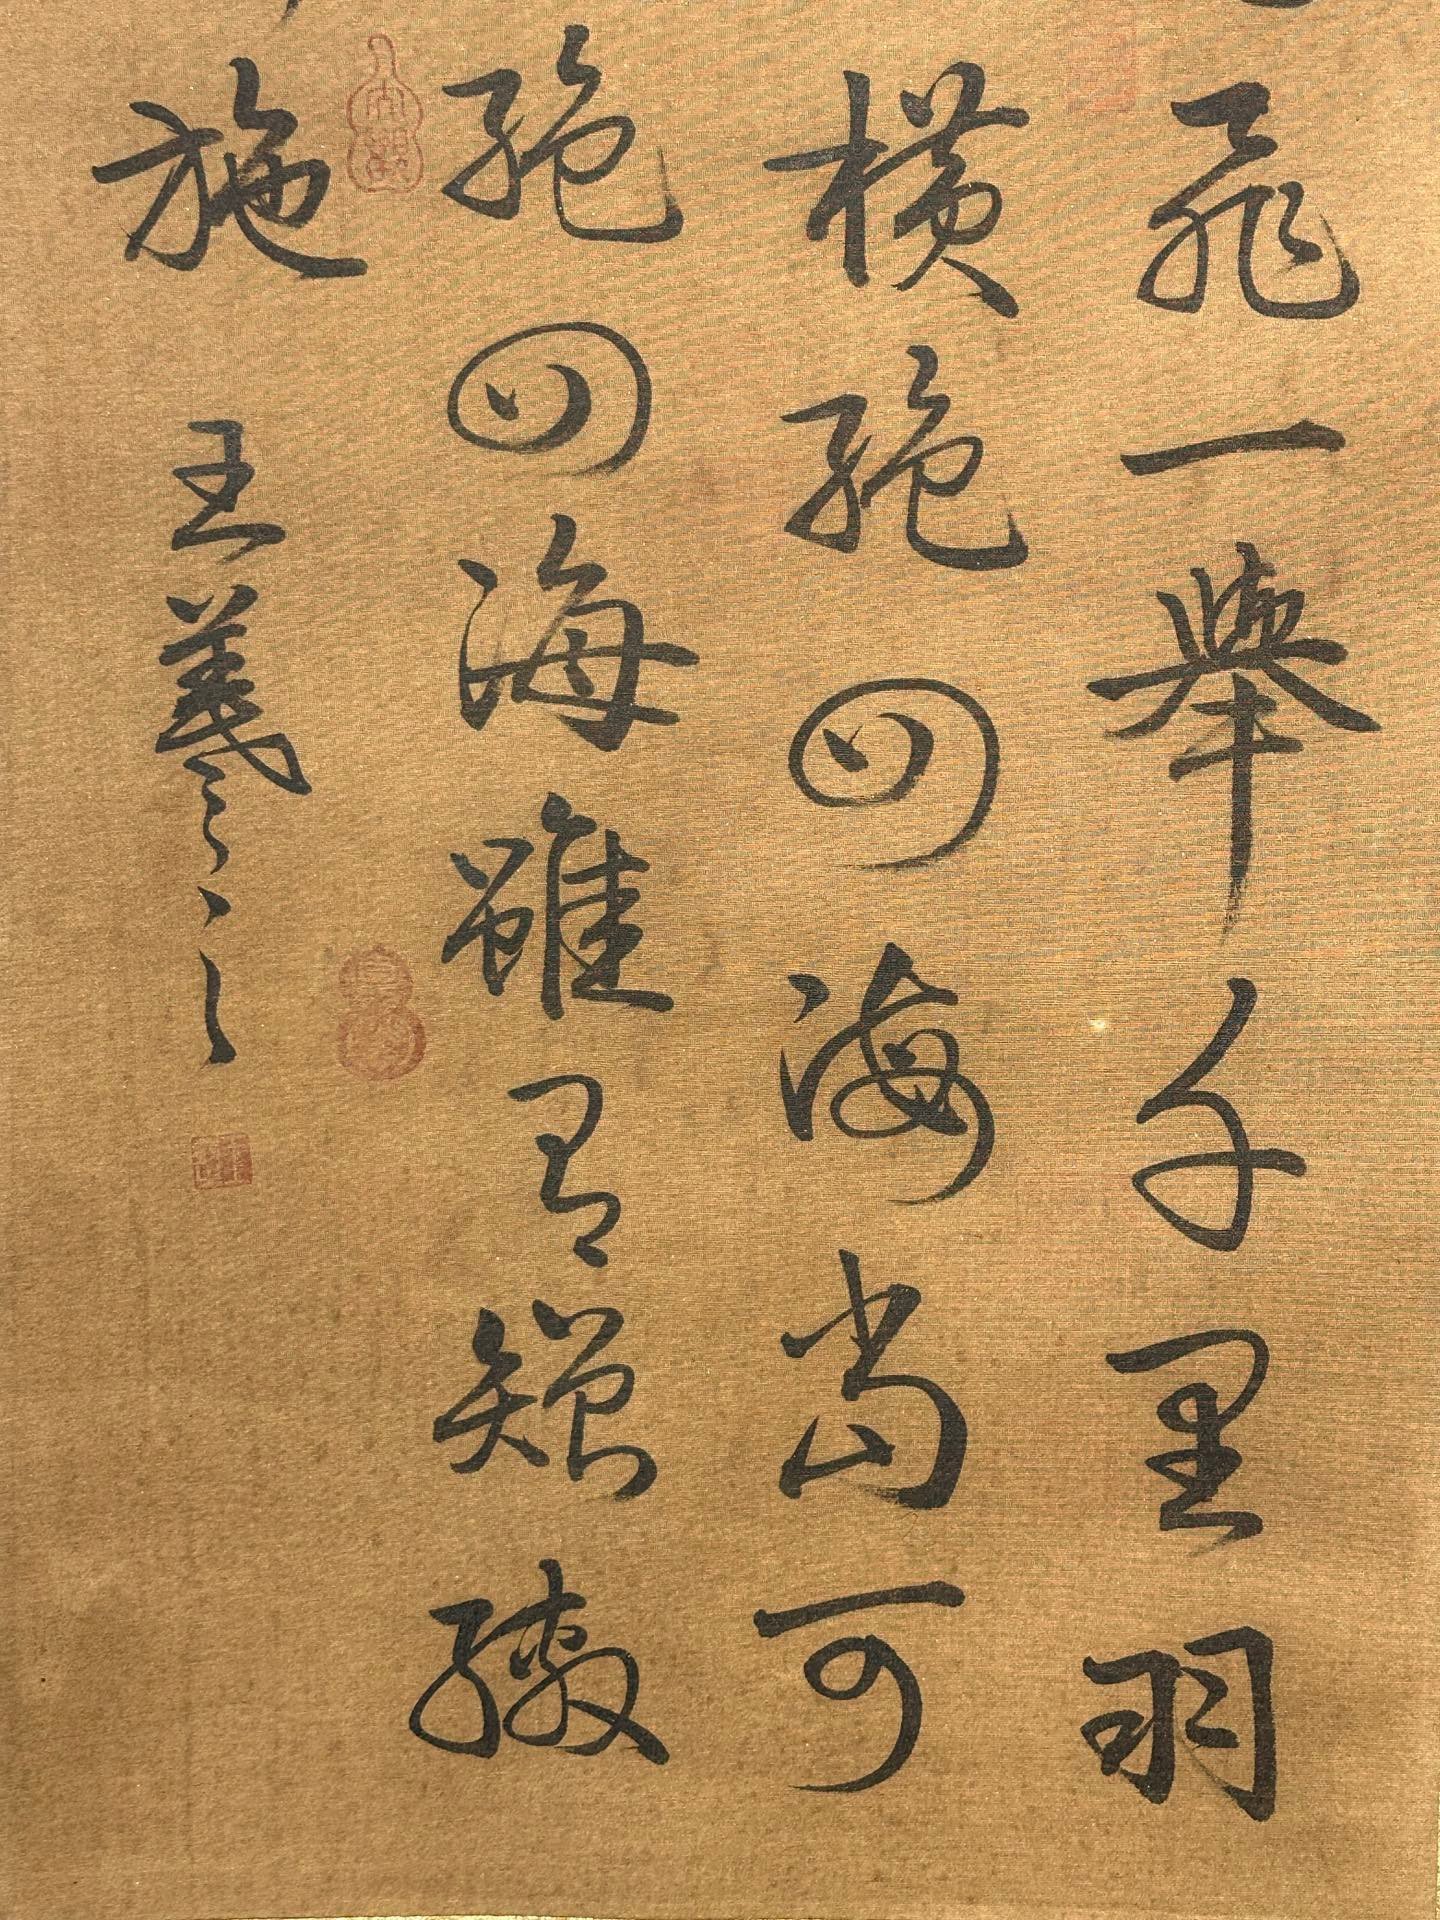 飛一舉千里羽
橫絕四海當可
絕四海雖有矰繳
施
王羲之